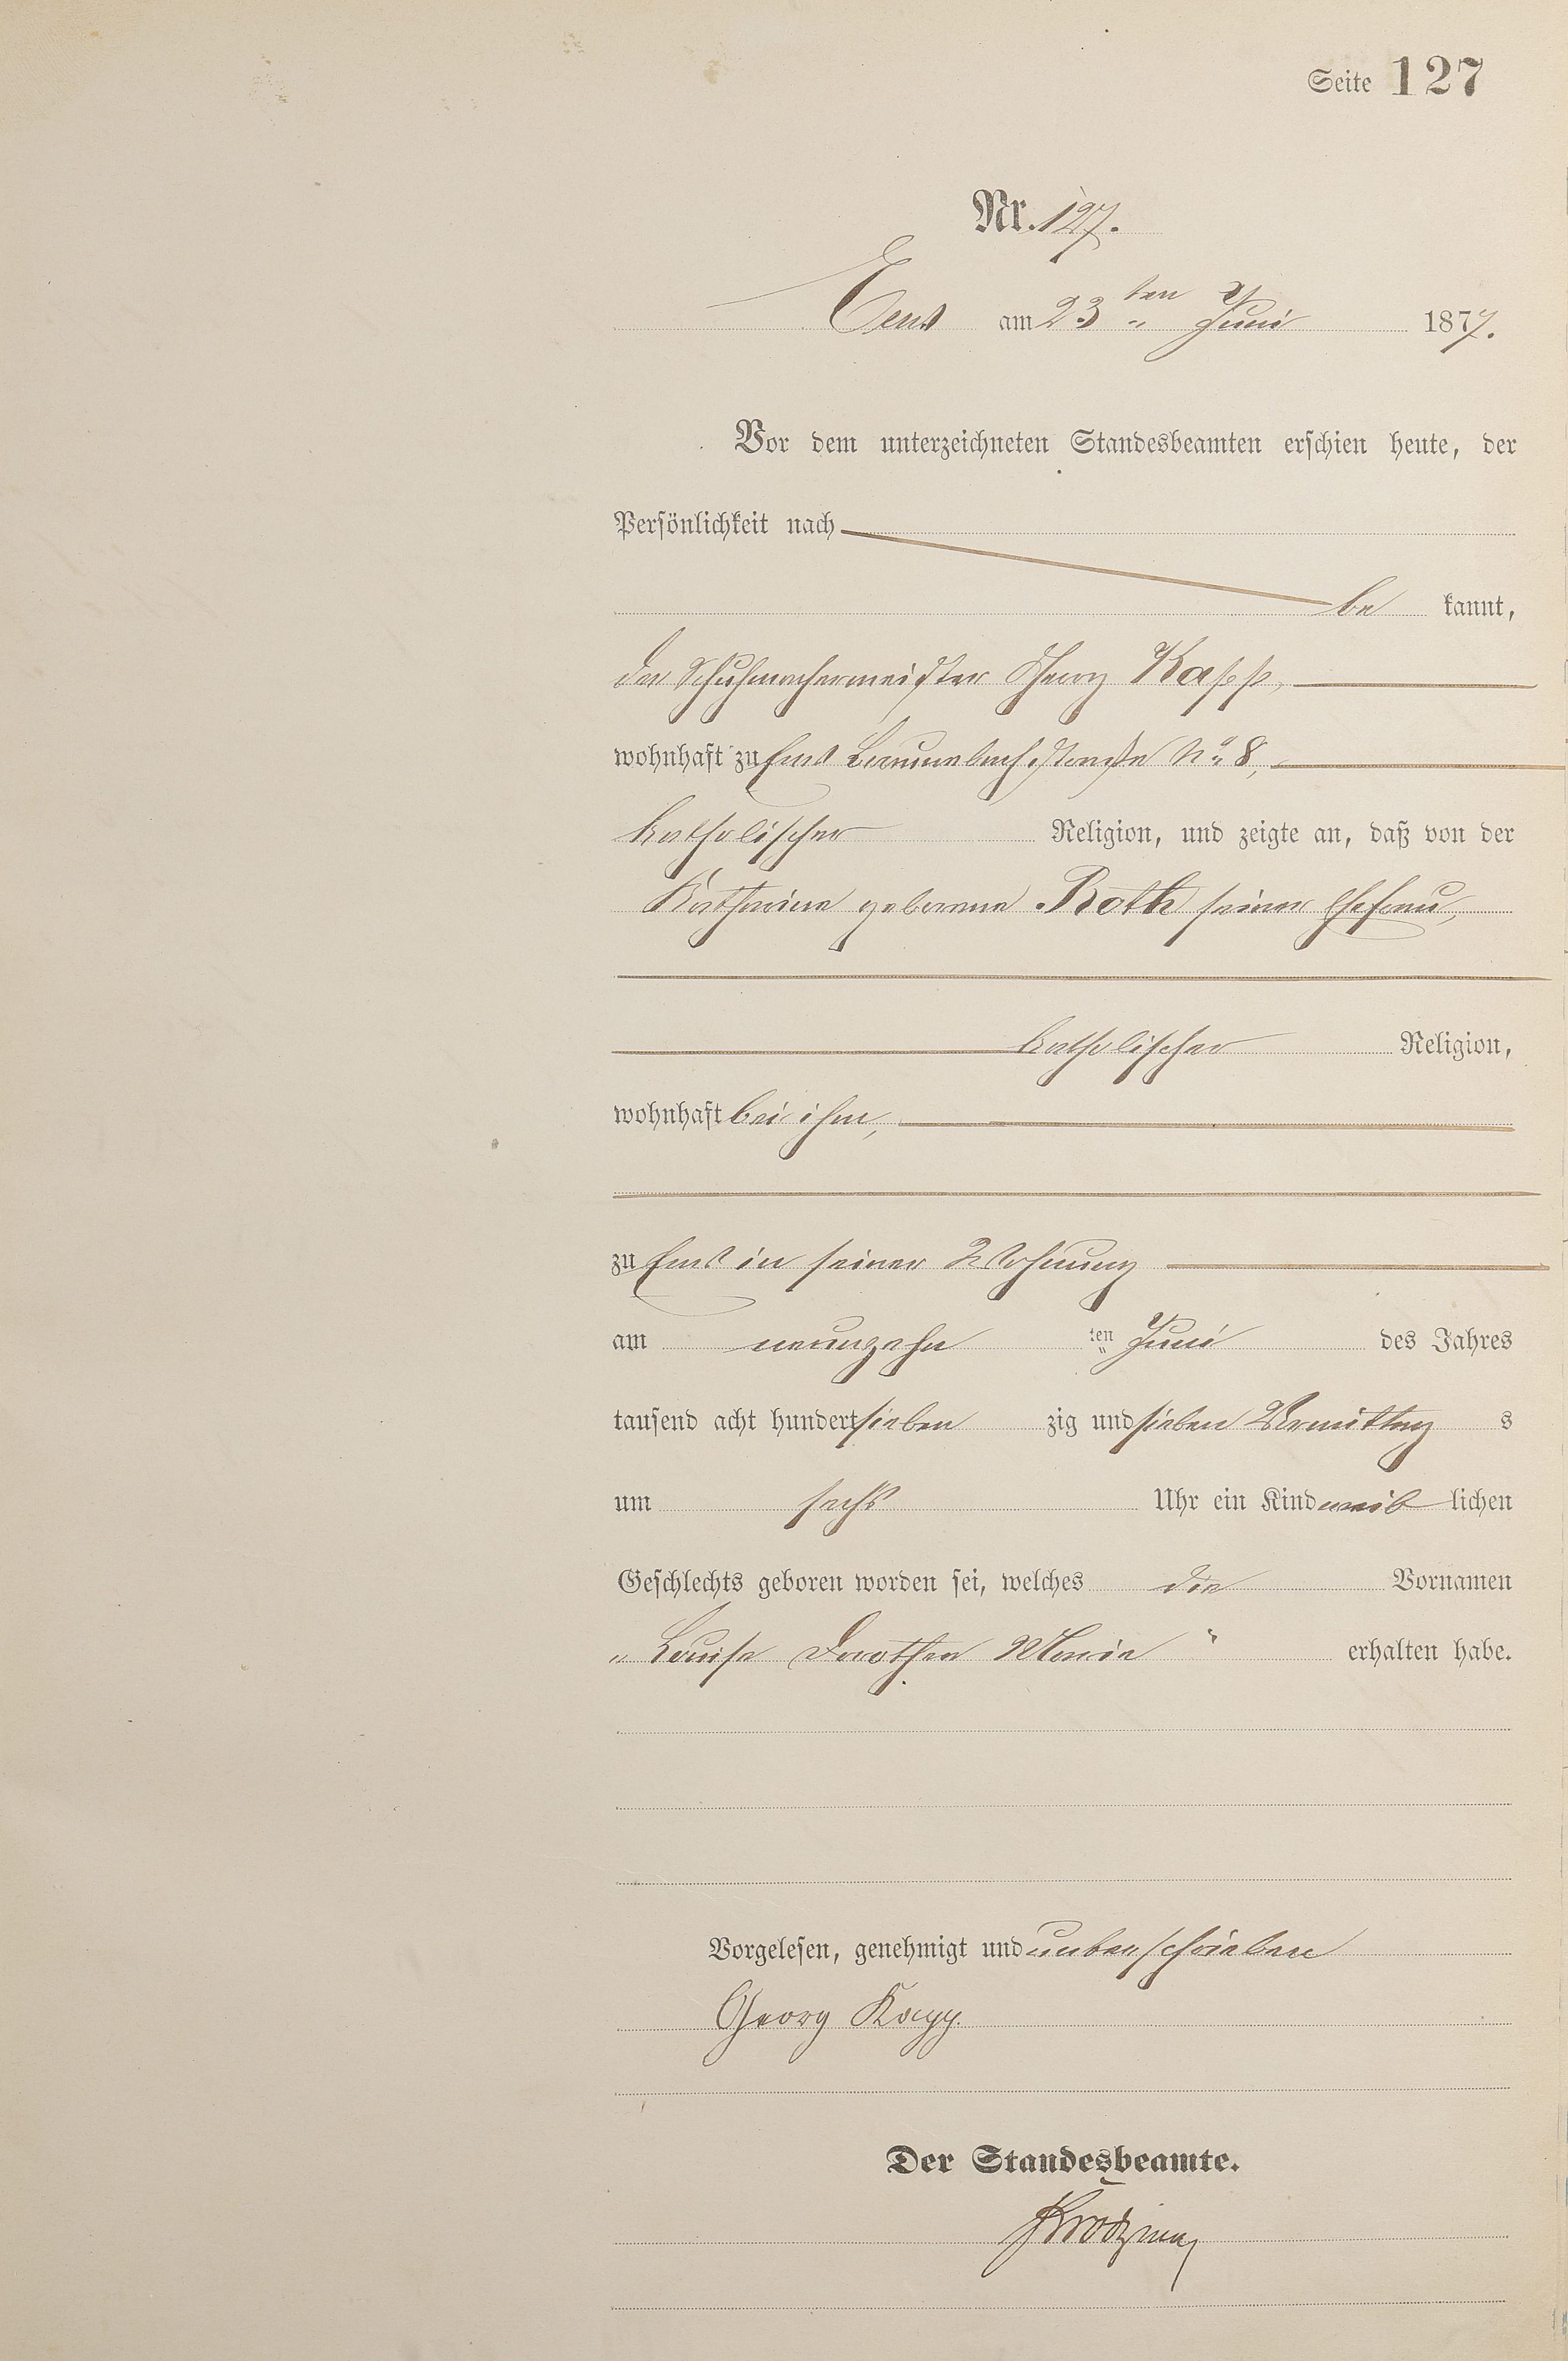 Seite 127
Nr. 127.
Ems am 23ten Juni 1877.
Vor dem unterzeichneten Standesbeamten erschien heute, der
Persönlichkeit nach
be kannt,
der Schuhmachermeister Georg Kapp,
wohnhaft zu Ems Braunebachstraße No. 8,
katholischer Religion, und zeigte an, daß von der
Katharine geborene Roth seiner Ehefrau,
katholischer Religion,
wohnhaft bei ihm,
zu Ems in seiner Wohnung
am neunzehn ten Juni des Jahres
tausend acht hundert sieben zig und sieben Vormittag s
um sechs Uhr ein Kind weib lichen
Geschlechts geboren worden sei, welches die Vornamen
„Louise Dorothea Marie“ erhalten habe.
Vorgelesen, genehmigt und unterschrieben
Georg Kapp.
Der Standesbeamte.